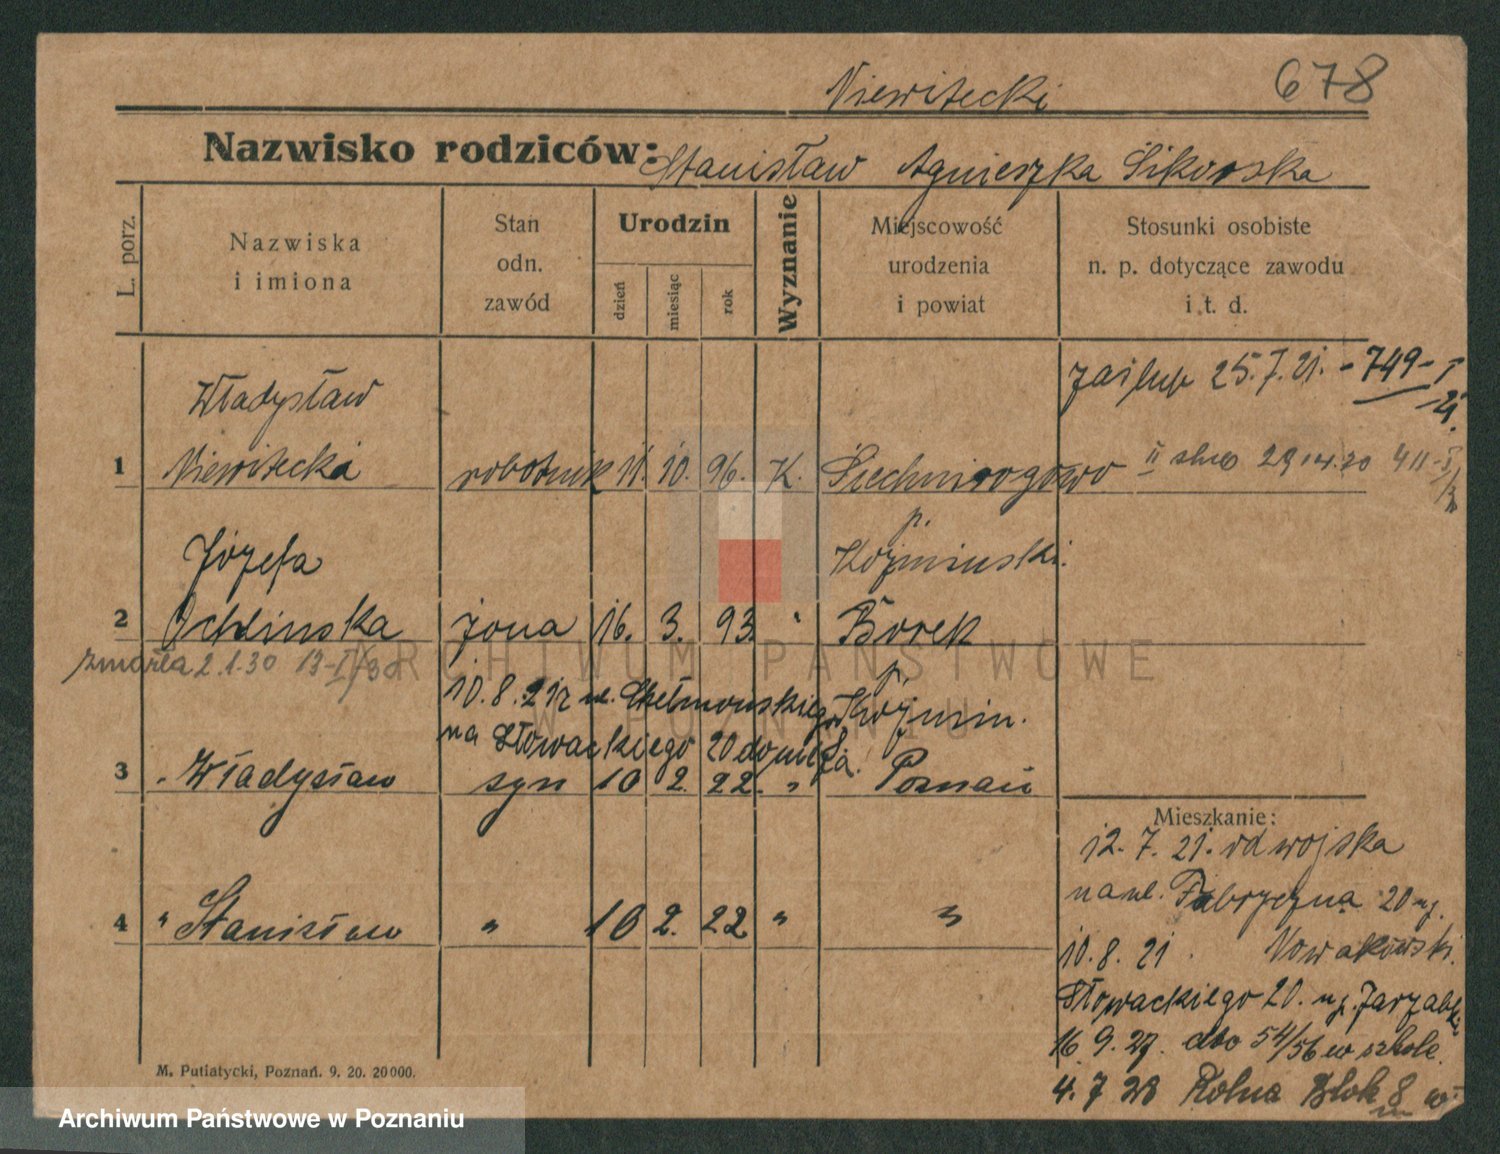 Niewitecki 678
Nazwisko rodziców: Stanisław Agnieszka Sikorska
L. porz.
Nazwiska
i imiona
Stan
odn.
zawód
Urodzin
dzień
miesiąc
rok
Wyznanie
Miejscowość
urodzenia
i powiat
Stosunki osobiste
n. p. dotyczące zawodu
i t. d.
zaślub 25.7.21. - 749 - I
21.
Władysław
1 Niewitecki robotnik 11. 10. 96. K. II ślub 29.4.30 411-I
p.
Józefa Koźmiński.
2 żona 16. 3. 93. " Borek
zmarła 2.1.30 13-I/30
p.
10.8.21r ul. Koźmin.
na Słowackiego 20
3 " Władysław syn 10 2. 22. " Poznań
4 " Stanisław " 10 2. 22 " "
Mieszkanie:
12.7.21. od wojska
na ul. Fabryczną 20 u p.
10.8.21. Nowakowski.
Słowackiego 20. u p.
16.9.27. dto 54/56 w szkole
4.7 28 Rolna Blok 8
M. Putiatycki, Poznań. 9. 20. 20000.
ARCHIWUM PAŃSTWOWE
W POZNANIU
Archiwum Państwowe w Poznaniu